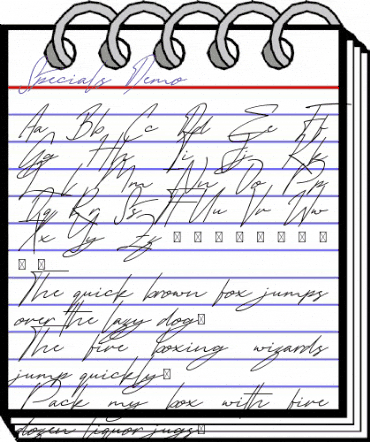 Specials Demo
Aa Bb Cc Dd Ee Ff
Gg Hh Ii Jj Kk
Ll Mm Nn Oo Pp
Qq Rr Ss Tt Uu Vv Ww
Xx Yy Zz
The quick brown fox jumps
over the lazy dog
The five boxing wizards
jump quickly
Pack my box with five
dozen liquor jugs